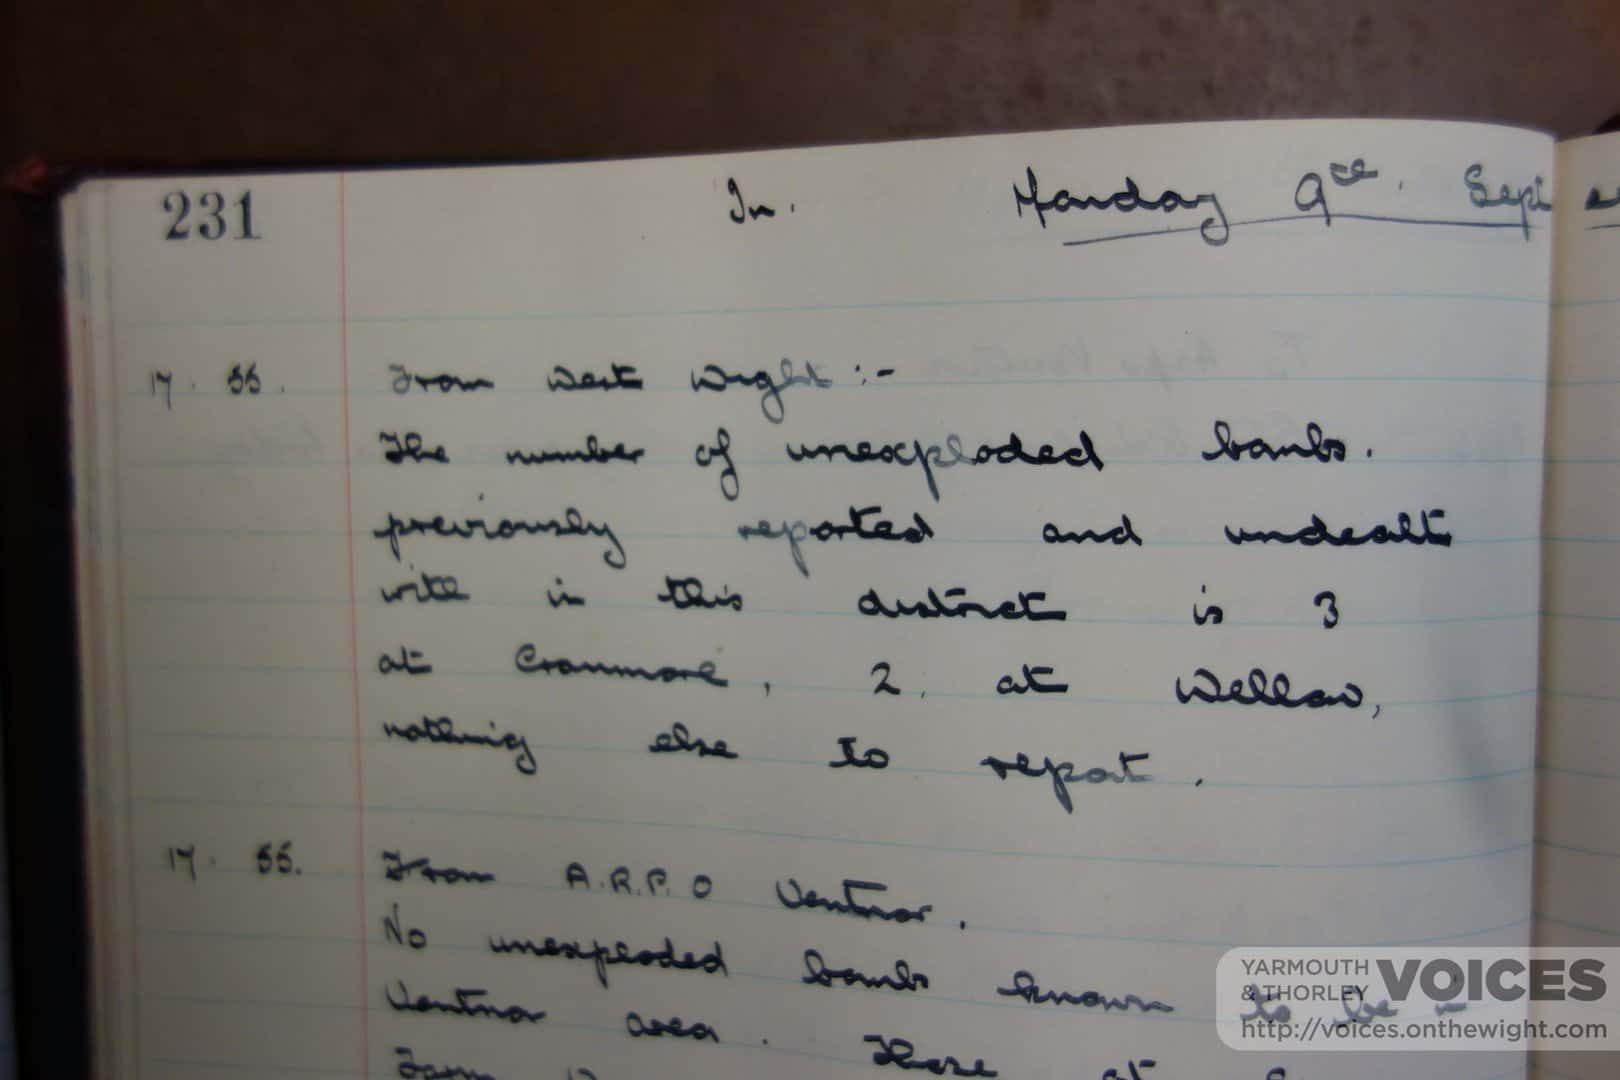 231 In. Monday 9th. Sept
17.55. From West Wight :-
The number of unexploded bombs.
previously reported and undealt
with in this district is 3
at Cranmore, 2, at Wellow,
nothing else to report.
17.55. From A.R.P.O Ventnor.
No unexploded bombs known to be in
Ventnor area. Those at
Farm
YARMOUTH & THORLEY VOICES
http://voices.onthewight.com